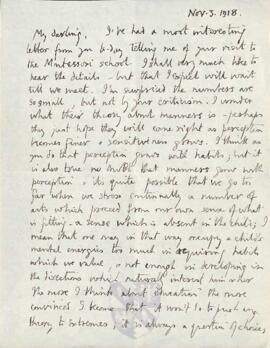 Nov. 3. 1918.
My darling, I've had a most interesting
letter from you to-day telling me of your visit to
the Montessori school. I shall very much like to
hear the details - but that I expect will wait
till we meet. I'm surprised the numbers are
so small, but not by your criticism. I wonder
what their theory about manners is - perhaps
they just hope they will come right as perception
becomes finer & sensitiveness grows. I think as
you do that perception grows with habits; but it
is also true no doubt that manners grow with
perception & it's quite possible that we go too
far when we stress continually a number of
acts which proceed from our own sense of what
is fitting, a sense which is absent in the child; I
mean that we may in that way occupy a child's
mental energies too much in acquiring habits
which we value & not enough in developing in
the directions which natural interest him or her.
The more I think about education the more
convinced I become that it won't do to push any
theory to extremes; it is always a question of choices,